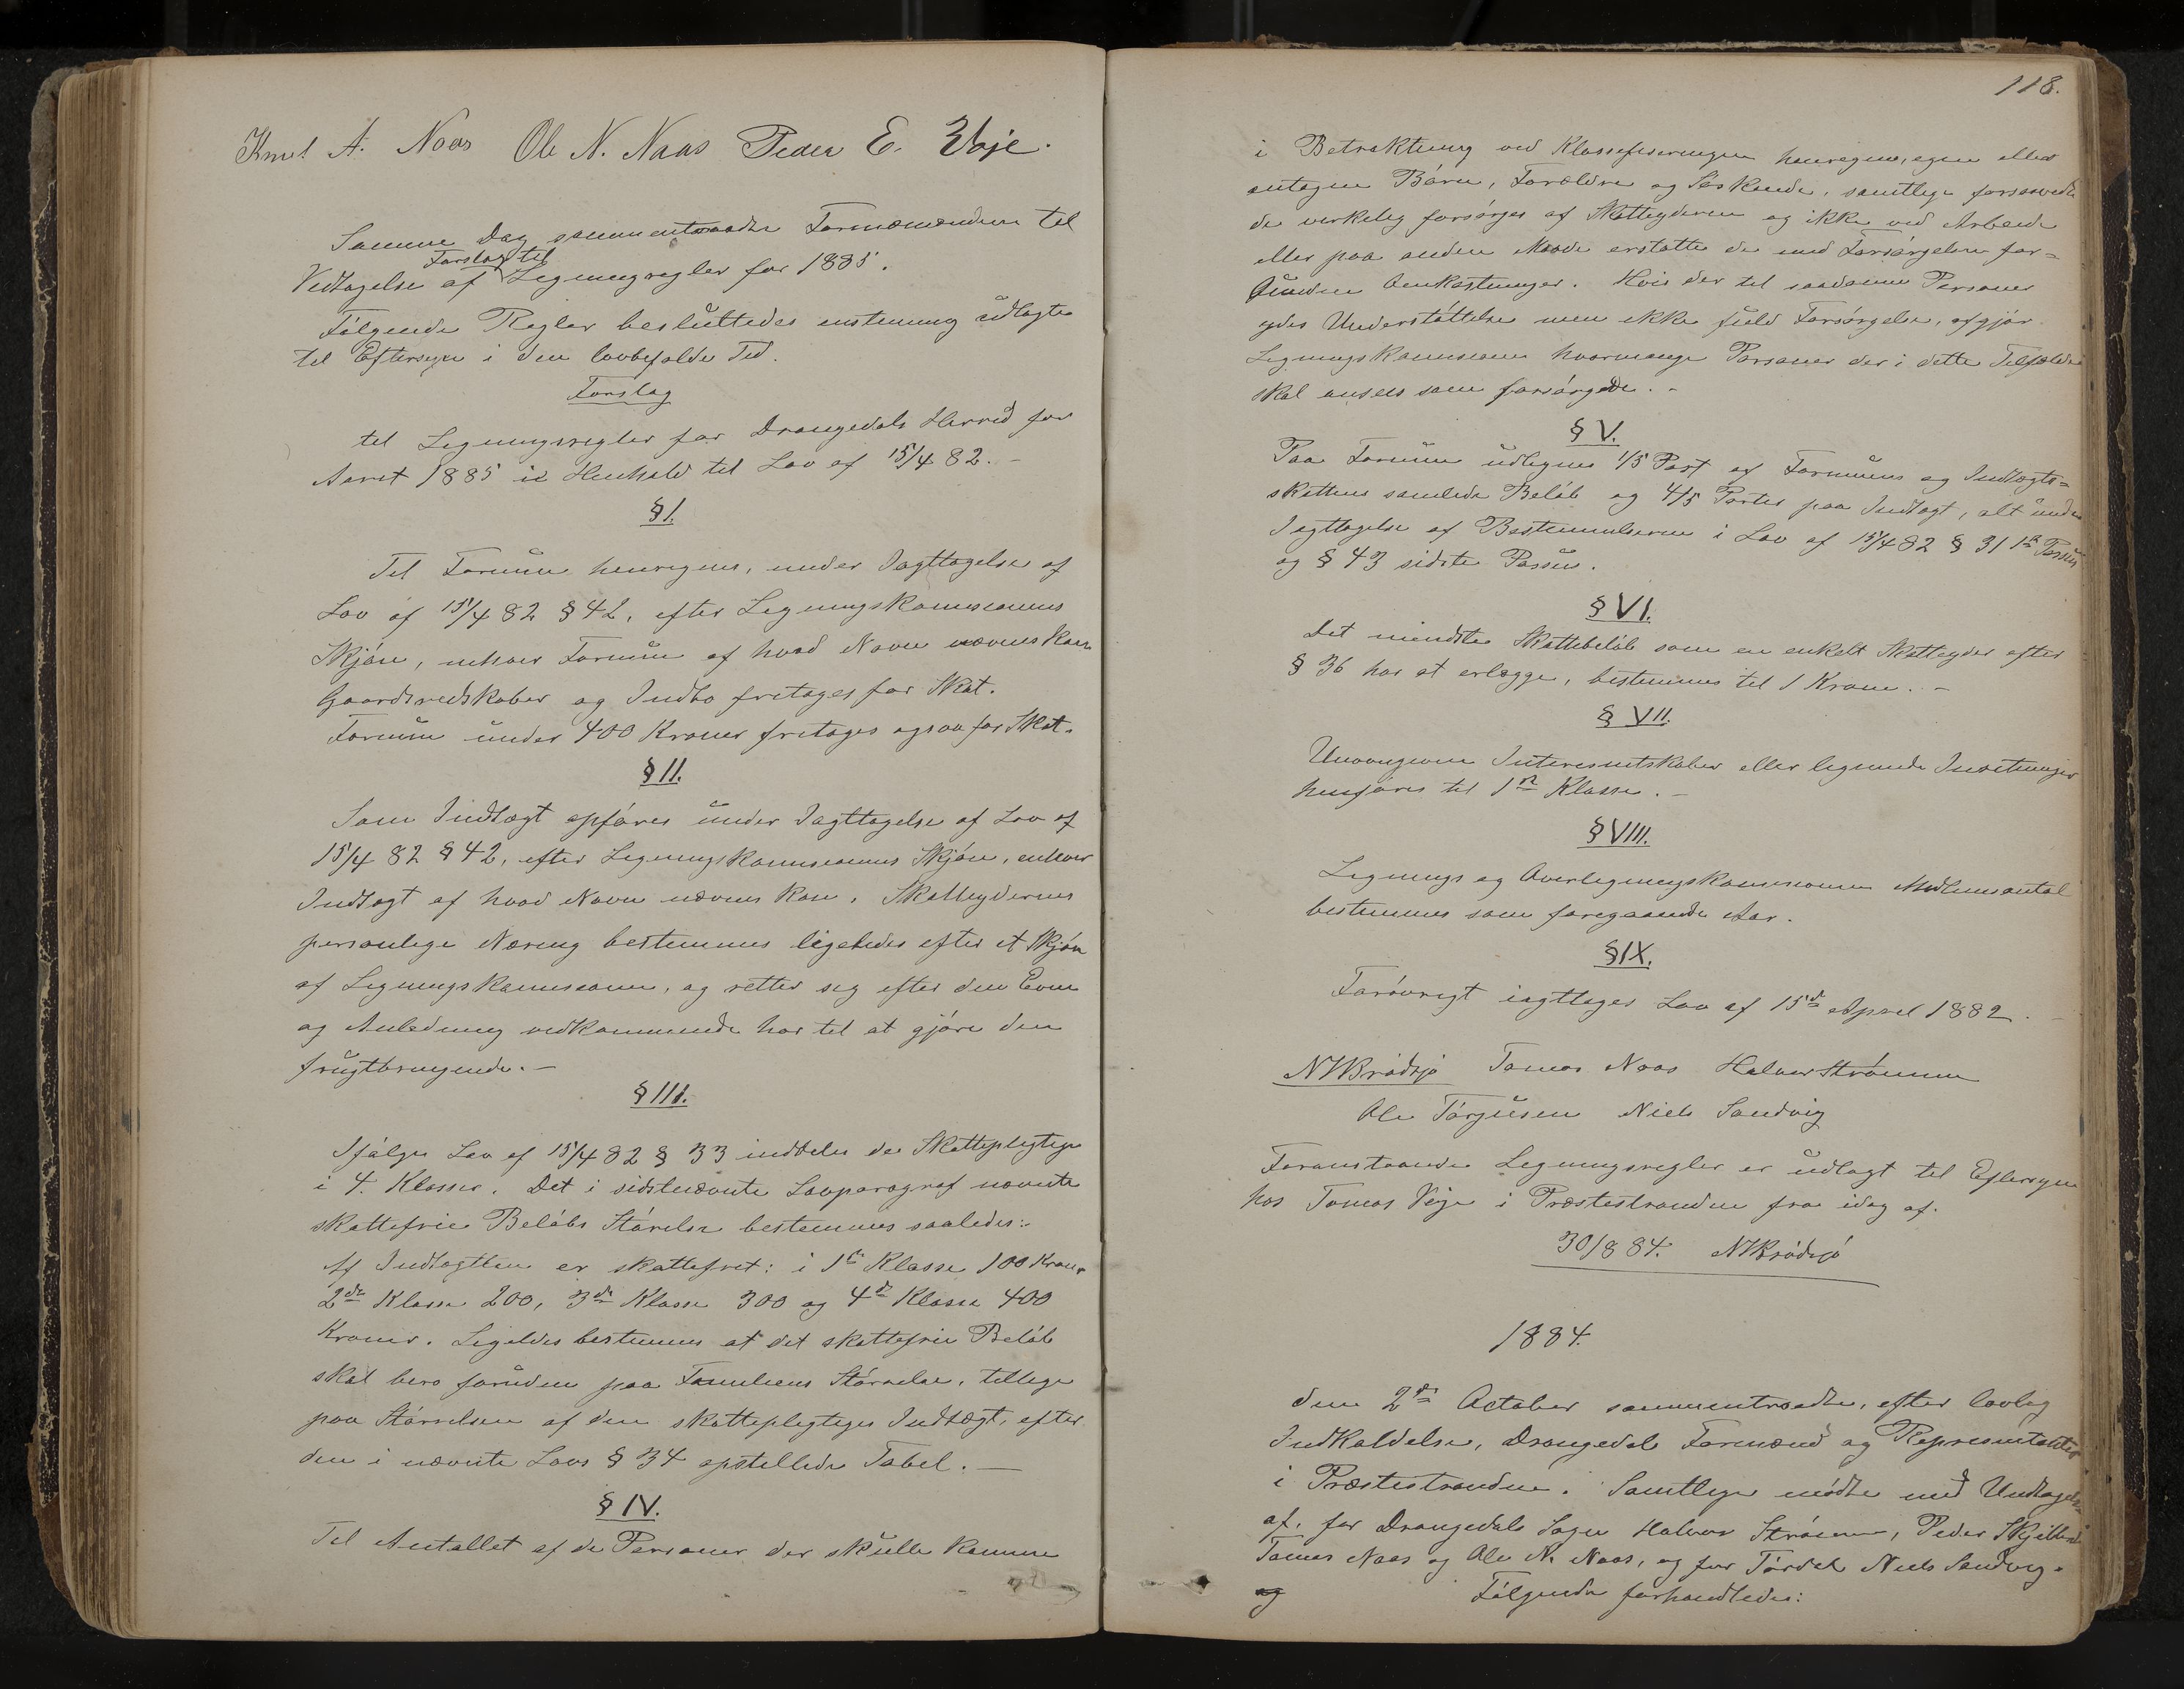 Knut A. Naas Ole N. Naas Peder E. Voje.
Samme Dag sammentraadte Formændene til
Forslag til
Vedtagelse af Ligningsregler for 1885.
Følgende Regler besluttedes enstemmig udlagte
til Eftersyn i den lovbefalde Tid.
Forslag
til Ligningsregler for Drangedals Herred for
Aaret 1885 i Henhold til Lov af 15/4 82. -
§ I.
Til Formue henregnes, under Iagttagelse af
Lov af 15/4 82 § 42, efter Ligningskommisionens
Skjøn, enhver Formue af hvad Navn nævnes kan.
Gaardsredskaber og Indbo fritages for Skat.
Formue under 400 Kroner fritages ogsaa for Skat.
§ II.
Som Indtægt opføres under Iagttagelse af Lov af
15/4 82 § 42, efter Ligningskommisionens Skjøn, enhver
Indtægt af hvad Navn nævnes kan. Skatteydernes
personlige Næring bestemmes ligeledes efter et Skjøn
af Ligningskommisionen, og retter sig efter den Evne
og Anledning vedkommende har til at gjøre den
frugtbringende. -
§ III.
Ifølge Lov af 15/4 82 § 33 inddeles de Skattepligtige
i 4. Klasser. Det i sidstnævnte Lovparagraf nævnte
skattefrie Beløbs Størrelse bestemmes saaledes:
Af Indtægten er skattefrit: i 1ste Klasse 100 Kroner
2den Klasse 200, 3die Klasse 300 og 4de Klasse 400
Kroner. Ligeledes bestemmes at det skattefrie Beløb
skal bero foruden paa Familiens Størrelse, tillige
paa Størrelsen af den skattepligtiges Indtægt, efter
den i nævnte Lovs § 34 opstillede Tabel. -
§ IV.
Til Antallet af de Personer der skulle komme
118.
i Betraktning ved Klassefiseringen henregnes, egne eller
antagne Børn, Forældre og Søskende, samtlige forsaavidt
de virkelig forsørges af Skatteyderen og ikke ved Arbeide
eller paa anden Maade erstatte de med Forsørgelsen for=
bundne Omkostninger. Hvis der til saadanne Personer
ydes Understøttelse men ikke fuld Forsørgelse, afgjør
Ligningskommisionen hvormange Personer der i dette Tilfælde
skal ansees som forsørgede. -
§ V.
Paa Formue udlignes 1/5 Part af Formues og Indtægts=
skattens samlede Beløb og 4/5 Parter paa Indtægt, alt under
Iagttagelse af Bestemmelserne i Lov af 15/4 82 § 31 1ste Passus
og § 43 sidste Passus.
§ VI.
Det mindste Skattebeløb som en enkelt Skatteyder efter
§ 36 har at erlægge, bestemmes til 1 Krone. -
§ VII.
Uansvarlige Interesentskaber eller lignende Indretninger
henføres til 1ste Klasse. -
§ VIII.
Lignings og Overligningskommisionens Medlemsantal
bestemmes som foregaaende Aar.
§ IX.
Forøvrigt iagttages Lov af 15de April 1882. -
NKBrødsjø Tomas Naas Halvor Strømme
Ole Tørjusen Niels Sandvig
Foranstaaende Ligningsregler er udlagt til Eftersyn
hos Tomas Voje i Præstestranden fra idag af.
30/8 84. NKBrødsjø
1884.
den 2den October sammentraadte, efter lovlig
Indkaldelse, Drangedals Formænd og Representanter
i Præstestranden. Samtlige mødte med Undtagelse
af, for Drangedals Sogn Halvor Strømme, Peder
Tomas Naas og Ole N. Naas, og for Tørdal Niels Sandvig.
og Følgende forhandledes: